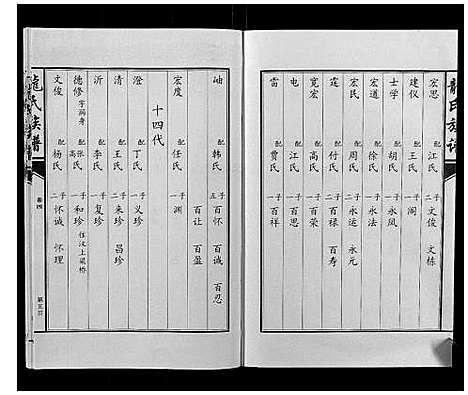 龍氏族譜
宏思 配江氏 二子 文俊 文棟
建仪 配王氏 一子 闹
士学 配胡氏 一子 永凤
宏道 配徐氏 一子 永法
宏民 配周氏 二子 永运 永元
霆 配付氏 二子 百禄 百寿
宽宏 配高氏 一子 百荣
电 配江氏 一子 百恩
雷 配贾氏 一子 百祥
岫 配韩氏 五子 百怀 百诚 百忍 百让 百盈
宏度 配任氏 一子 渊
十四代
澄 配丁氏 一子 义珍
清 配王氏 二子 来珍 昌珍
沂 配李氏 一子 复珍
德修 字润身 配张氏 高氏 一子 和珍 住汶上梁桥
文俊 配杨氏 二子 怀诚 怀理
龍氏族譜
卷四